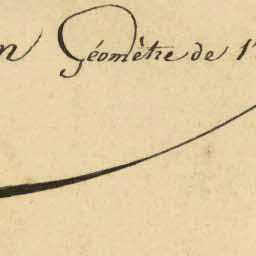 n Géomètre de l'